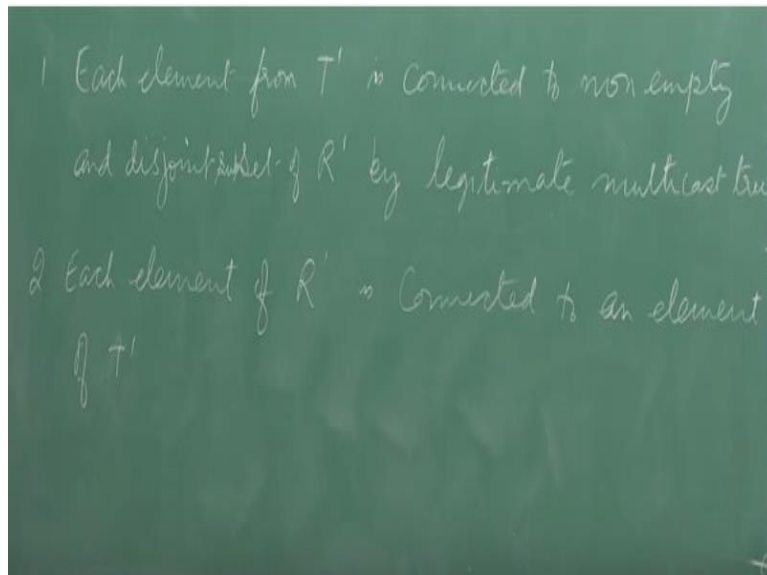 1 Each element from T' is connected to non empty
and disjoint subset of R' by legitimate multicast tree
2 Each element of R' is connected to an element
of T'